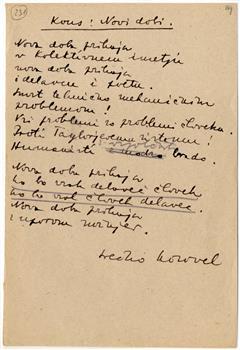 231
Kons: Novi dobi.
Nova doba prihaja
v Kolektivnem imetju
nova doba prihaja
i delavcu i
Smrt tehnično mehaničnim
problemom!
Vsi problemi so problemi človeka.
Proti Taylorjevemu sistemu!
Humanisti z brado.
Nova doba prihaja
ko bo vsak delavec človek
ko bo vsak človek delavec.
Nova doba prihaja
z uporom
Srečko Kosovel